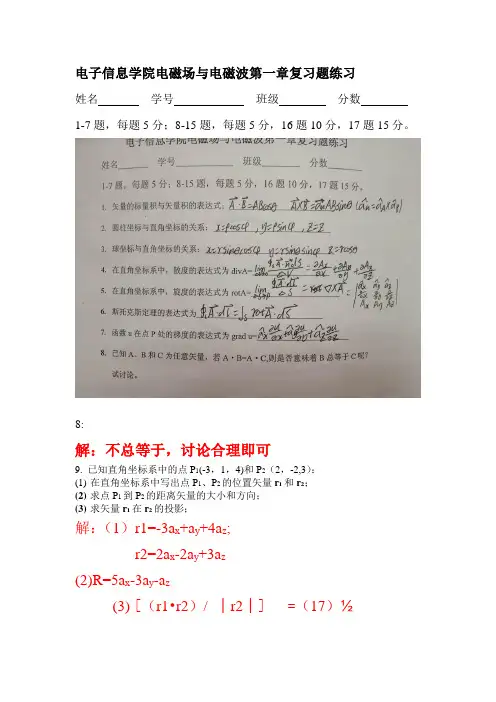 电子信息学院电磁场与电磁波第一章复习题练习
姓名 学号 班级 分数
1-7题，每题5分；8-15题，每题5分，16题10分，17题15分。
电子信息学院电磁场与电磁波第一章复习题练习
姓名 学号 班级 分数
1-7题，每题5分；8-15题，每题5分，16题10分，17题15分。
1. 矢量的标量积与矢量积的表达式：A⃗·B⃗=ABcosθ A⃗×B⃗=a⃗nABsinθ (âₙ=âₐ×â_B)
2. 圆柱坐标与直角坐标的关系：x=ρcosφ，y=ρsinφ，z=z
3. 球坐标与直角坐标的关系：x=rsinθcosφ y=rsinθsinφ z=rcosθ
4. 在直角坐标系中，散度的表达式为 divA= =∂Ax/∂x+∂Ay/∂y+∂Az/∂z
5. 在直角坐标系中，旋度的表达式为 rotA= =▽×A⃗=
6. 斯托克斯定理的表达式为 ∮A⃗·dl⃗=∫s rotA⃗·dS⃗
7. 函数 u 在点 P 处的梯度的表达式为 grad u=âx ∂u/∂x+ây ∂u/∂y+âz ∂u/∂z
8. 已知 A、B 和 C 为任意矢量，若 A·B=A·C,则是否意味着 B 总等于 C 呢？
试讨论。
8:
解：不总等于，讨论合理即可
9. 已知直角坐标系中的点 P1(-3，1，4)和 P2（2，-2,3）：
(1) 在直角坐标系中写出点 P1、P2 的位置矢量 r1 和 r2；
(2) 求点 P1 到 P2 的距离矢量的大小和方向；
(3) 求矢量 r1 在 r2 的投影；
解：（1）r1=-3ax+ay+4az;
r2=2ax-2ay+3az
(2)R=5ax-3ay-az
(3)［（r1•r2）/ │r2│］ =（17）½